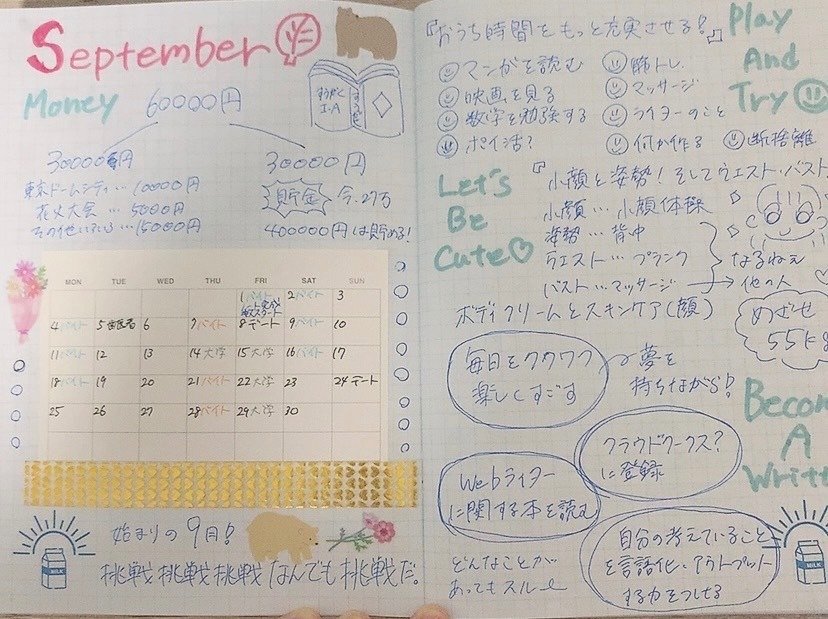 September
Money 60000円
すうがく
I・A
30000円
30000円
東京ドームシティ…10000円
花火大会…5000円
その他いろいろ…15000円
貯金
今、27万
400000円は貯める!
MON TUE WED THU FRI SAT SUN
1バイト 2バイト 3
4バイト 5歯医者 6 7バイト 8デート 9バイト 10
11バイト 12 13 14大学 15大学 16バイト 17
18バイト 19 20 21バイト 22大学 23 24デート
25 26 27 28バイト 29大学 30
始まりの9月!
挑戦挑戦挑戦なんでも挑戦だ。
MILK
『おうち時間をもっと充実させる!』
Play
And
Try
マンガを読む
筋トレ
映画を見る
マッサージ
数学を勉強する
ライターのこと
ポイ活?
何か作る
断捨離
Let's
Be
Cute
『小顔と姿勢!そしてウエスト・バスト
小顔…小顔体操
姿勢…背中
ウエスト…プランク
バスト…マッサージ
なるねぇ
他の人
ボディクリームとスキンケア(顔)
めざせ
55kg
毎日をワクワク
楽しくすごす
夢を
持ちながら!
Become
A
Writer
クラウドワークス?
に登録
Webライター
に関する本を読む
どんなことが
あってもスルー
自分の考えていること
を言語化・アウトプット
する力をつける
MILK